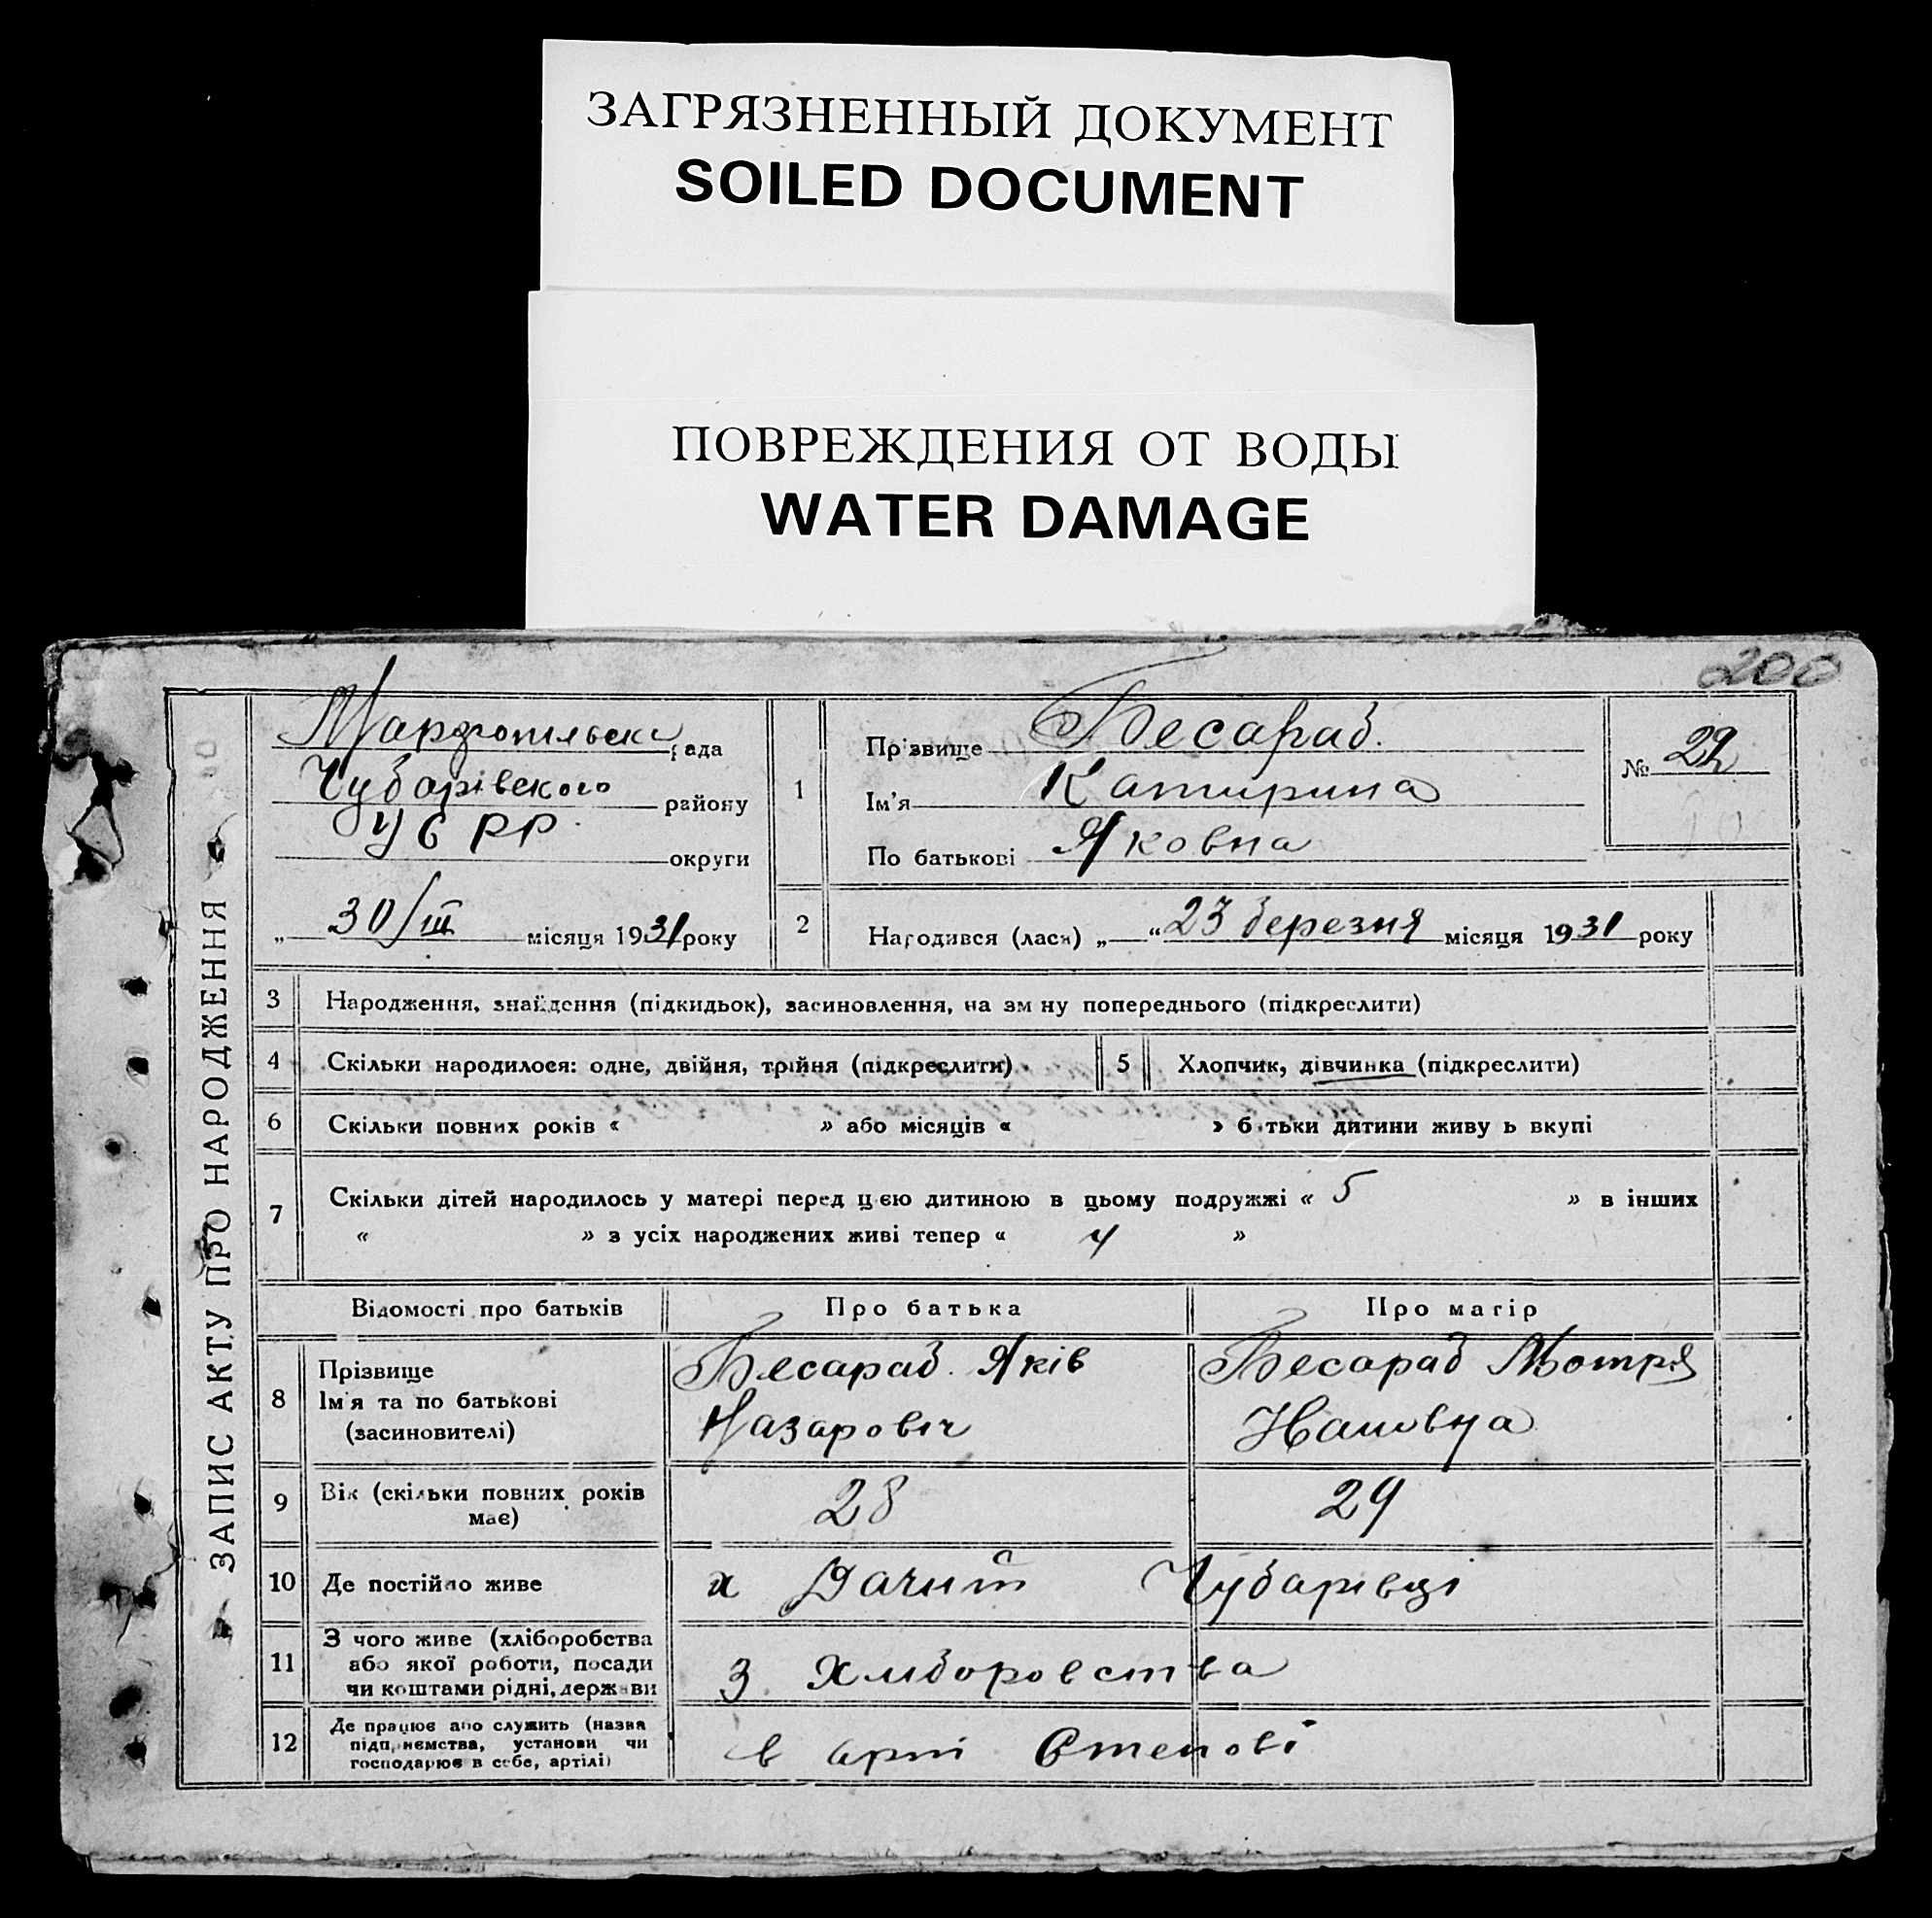 ЗАГРЯЗНЕННЫЙ ДОКУМЕНТ
SOILED DOCUMENT
ПОВРЕЖДЕНИЯ ОТ ВОДЫ
WATER DAMAGE
200
ЗАПИС АКТУ ПРО НАРОДЖЕННЯ
рада
Чубарівского району
УСРР округи
„ 30/III місяця 1931 року
1
Прізвище Бесараб.
Ім'я Катирина
По батькові Яковна
№ 22
2 Народився (лася) „ “ 23 березня місяця 1931 року
3 Народження, знайдення (підкидьок), засиновлення, на зм ну попереднього (підкреслити)
4 Скільки народилося: одне, двійня, трійня (підкреслити) 5 Хлопчик, дівчинка (підкреслити)
6 Скільки повних років « » або місяців « » б тьки дитини живу ь вкупі
7 Скільки дітей народилось у матері перед цією дитиною в цьому подружжі « 5 » в інших
« » з усіх народжених живі тепер « 4 »
Відомості про батьків Про батька Про матір
8 Прізвище
Ім'я та по батькові
(засиновителі)
Бесараб Яків
Назаровіч
Бесараб Мотря
9 Вік (скільки повних років
має)
28 29
10 Де постійно живе х Дачит Чубарівці
11 З чого живе (хліборобства
або якої роботи, посади
чи коштами рідні, держави
З Хліборовства
12 Де працює або служить (назва
підприємства, установи чи
господарює в себе, артілі)
в арті Степові